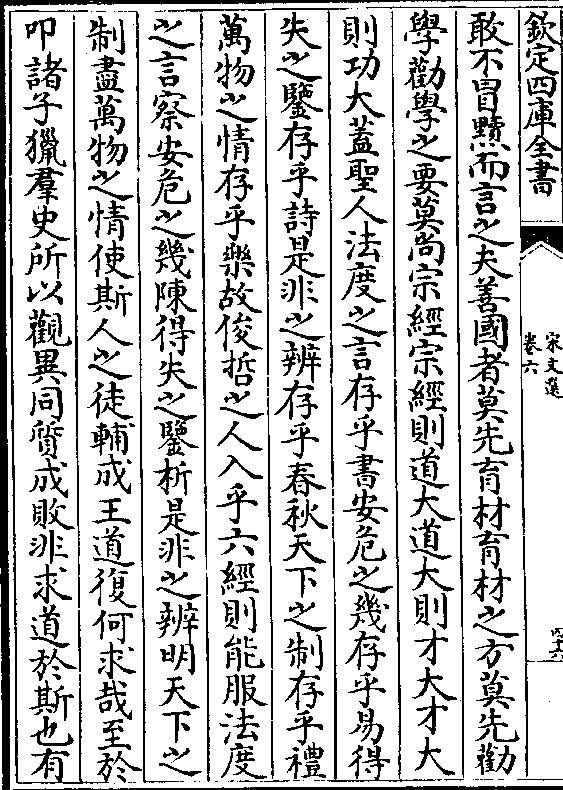 欽定四庫全書
宋文選
卷六
四十六
敢不冒黷而言之夫善國者莫先育材育材之方莫先勸
學勸學之要莫尚宗經宗經則道大道大則才大才大
則功大蓋聖人法度之言存乎書安危之幾存乎易得
失之鑒存乎詩是非之辨存乎春秋天下之制存乎禮
萬物之情存乎樂故俊哲之人入乎六經則能服法度
之言察安危之幾陳得失之鑒析是非之辨明天下之
制盡萬物之情使斯人之徒輔成王道復何求哉至於
叩諸子獵羣史所以觀異同質成敗非求道於斯也有